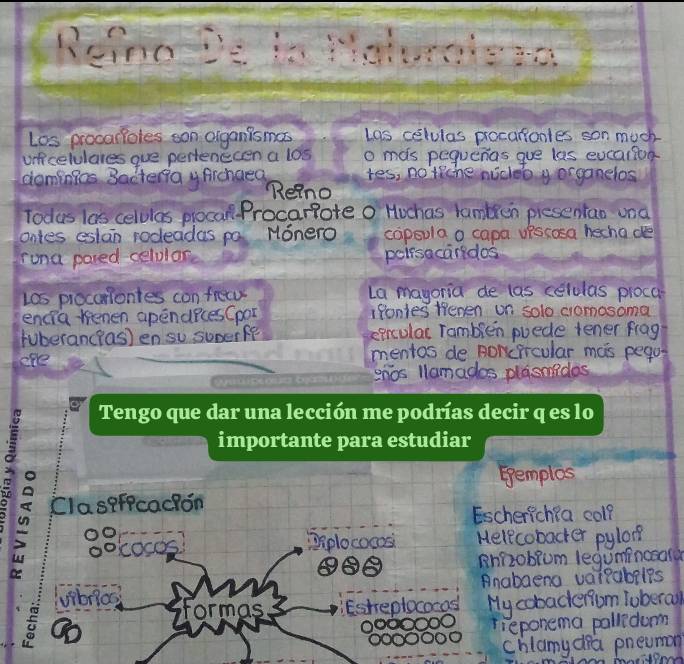 Reino De la Naturaleza
Los procariotes son organismos
unicelulares que pertenecen a los
dominios Bacteria y Archaea
Las células procariontes son much
o más pequeñas que las eucarion
tes, no tiene núcleo y organelos
Reino
Procariote o
Mónero
Todas las celulas procari
ontes están rodeadas po
r una pared celular
Muchas también presentan una
cápsula o capa viscosa hecha de
polisacáridos
Los procariontes con frecu
encia tienen apéndices (pro
tuberancias) en su superfi
cie
La mayoria de las células proca
riontes tienen un solo cromosoma
circular También puede tener frag
mentos de ADN circular más pequ
eños llamados plásmidos
Tengo que dar una lección me podrías decir q es lo
importante para estudiar
Clasificación
cocos
Diplococos
vibrios
formas
Estreptococos
Ejemplos
Escherichia coli
Helicobacter pylori
Rhizobium leguminosaru
Anabaena variabilis
Mycobacterium tubercu
Treponema pallidum
Chlamydia pneumon
Biología y Química
REVISADO
Fecha: